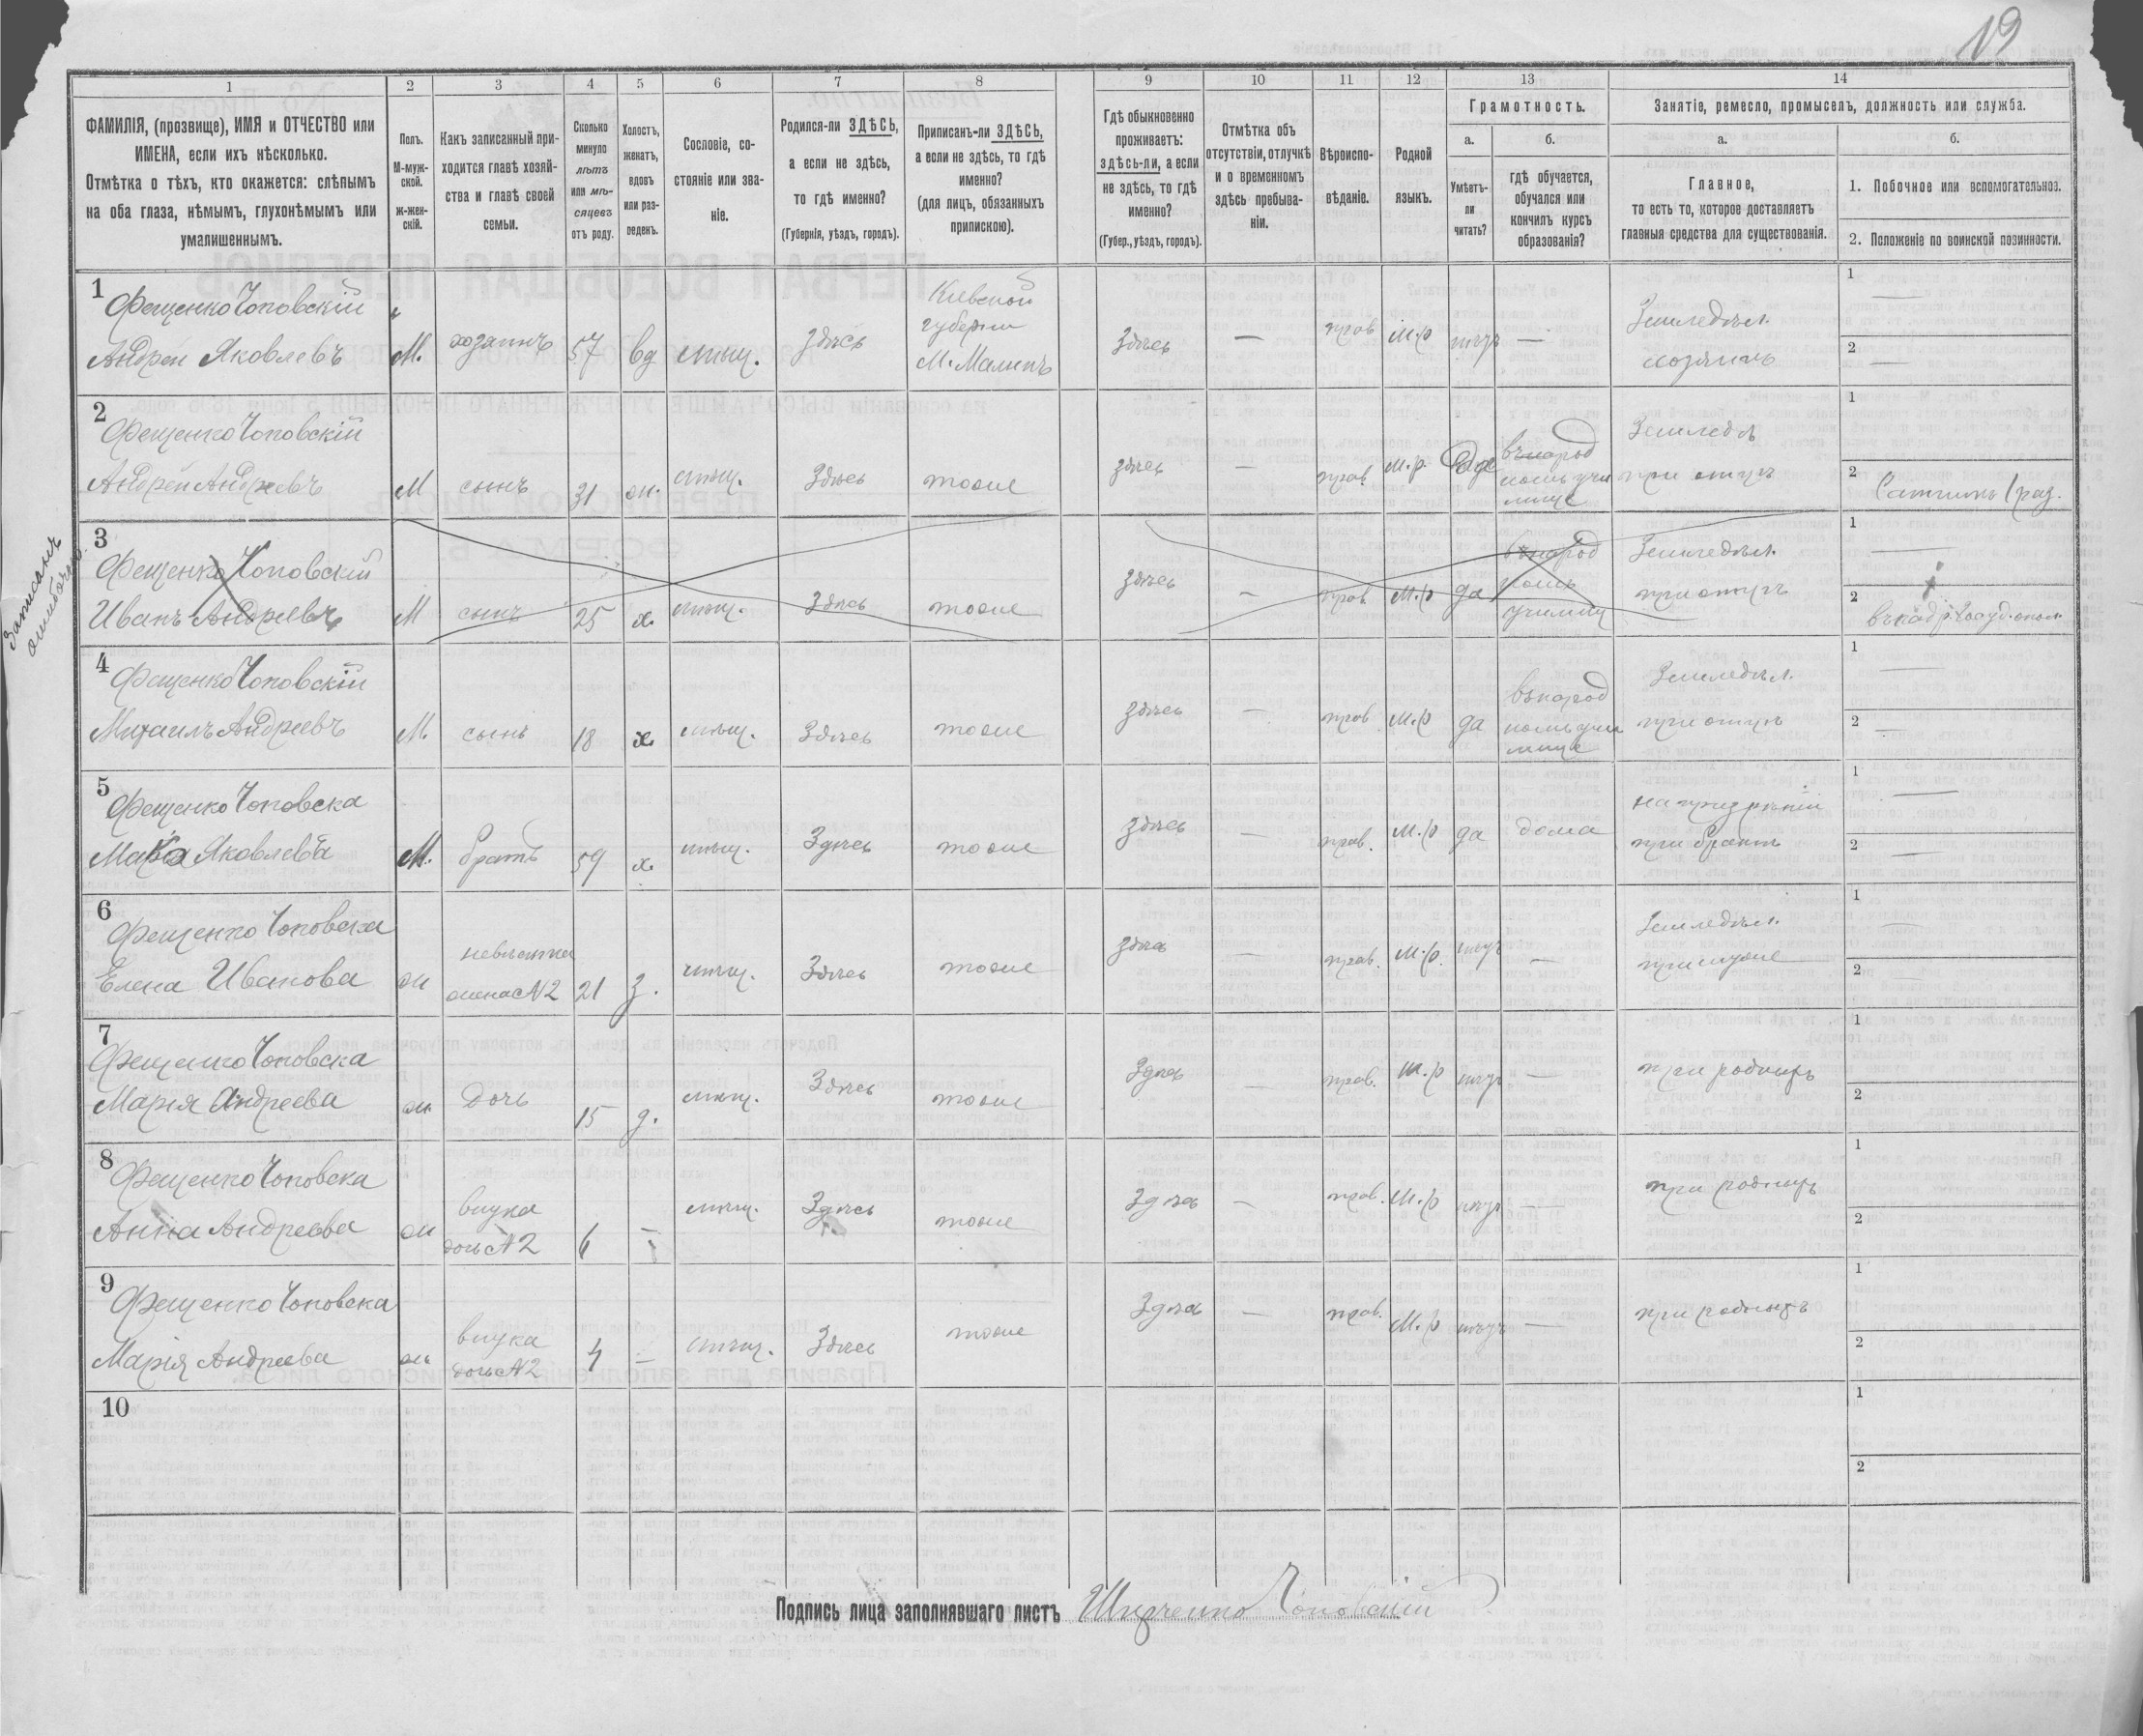 19
1 2 3 4 5 6 7 8 9 10 11 12 13 14
ФАМИЛІЯ, (прозвище), ИМЯ и ОТЧЕСТВО или
ИМЕНА, если ихъ нѣсколько.
Отмѣтка о тѣхъ, кто окажется: слѣпымъ
на оба глаза, нѣмымъ, глухонѣмымъ или
умалишеннымъ.
Полъ.
М-муж-
ской.
Ж-жен-
скій.
Какъ записанный при-
ходится главѣ хозяй-
ства и главѣ своей
семьи.
Сколько
минуло
лѣтъ
или мѣ-
сяцевъ
отъ роду.
Холостъ,
женатъ,
вдовъ
или раз-
веденъ.
Сословіе, со-
стояніе или зва-
ніе.
Родился-ли ЗДѢСЬ,
а если не здѣсь,
то гдѣ именно?
(Губернія, уѣздъ, городъ).
Приписанъ-ли ЗДѢСЬ,
а если не здѣсь, то гдѣ
именно?
(для лицъ, обязанныхъ
припискою).
Гдѣ обыкновенно
проживаетъ:
здѣсь-ли, а если
не здѣсь, то гдѣ
именно?
(Губер., уѣздъ, городъ).
Отмѣтка объ
отсутствіи, отлучкѣ
и о временномъ
здѣсь пребыва-
ніи.
Вѣроиспо-
вѣданіе.
Родной
языкъ.
Грамотность.
а.
Умѣетъ-
ли
читать?
б.
гдѣ обучается,
обучался или
кончилъ курсъ
образованія?
Занятіе, ремесло, промыселъ, должность или служба.
а.
Главное,
то есть то, которое доставляетъ
главныя средства для существованія.
б.
1. Побочное или вспомогательное.
2. Положеніе по воинской повинности.
1
Фещенко Чоповскій
Андрей Яковлевъ
М. хозяинъ 57 вд мѣщ. Здѣсь
Кіевской
губерніи
М. Малинъ
Здѣсь — прав м.р нѣтъ —
Земледѣл.
хозяинъ
1 —
2 —
2
Фещенко Чоповскій
Андрей Андреевъ
М сынъ 31 ж. мѣщ. Здѣсь тоже
здѣсь — прав м.р. да
въ народ
номъ учи
лище
Земледѣл
при отцѣ
1
2
3
Фещенко Чоповскій
Иванъ Андреевъ
Записанъ
ошибочно.
М сынъ 25 х. мѣщ. Здѣсь тоже
здѣсь — прав м.р да
въ народ
номъ
училищ
Земледѣл.
при отцѣ
1 —
2
4
Фещенко Чоповскій
Михаилъ Андреевъ
М. сынъ 18 х. мѣщ. Здѣсь тоже
здѣсь — прав м.р да
въ народ
номъ учи
лище
Земледѣл.
при отцѣ
1 —
2 —
5
Фещенко Чоповска
Яковлева
М. братъ 59 х. мѣщ. Здѣсь тоже
здѣсь — прав. м.р да дома
на призрѣніи
при братѣ
1 —
2 —
6
Фещенко Чоповска
Елена Иванова
ж
невѣстка
жена №2
21 з. мѣщ. Здѣсь тоже
здѣсь — прав. м.р. нѣтъ —
Земледѣл.
при мужѣ
1 —
2 —
7
Фещенко Чоповска
Марія Андреева
ж. Дочь 15 д. мѣщ. Здѣсь тоже
Здѣсь — прав. м.р нѣтъ —
при родныхъ
1
2
8
Фещенко Чоповска
Анна Андреева
ж
внука
дочь №2
6 — мѣщ. Здѣсь тоже
Здѣсь — прав. м.р нѣтъ —
при родныхъ
1
2
9
Фещенко Чоповска
Марія Андреева
ж.
внука
дочь №2
4 — мѣщ. Здѣсь тоже
Здѣсь — прав. м.р нѣтъ —
при родныхъ
1
2
10
1
2
Подпись лица заполнявшаго листъ Чоповскій